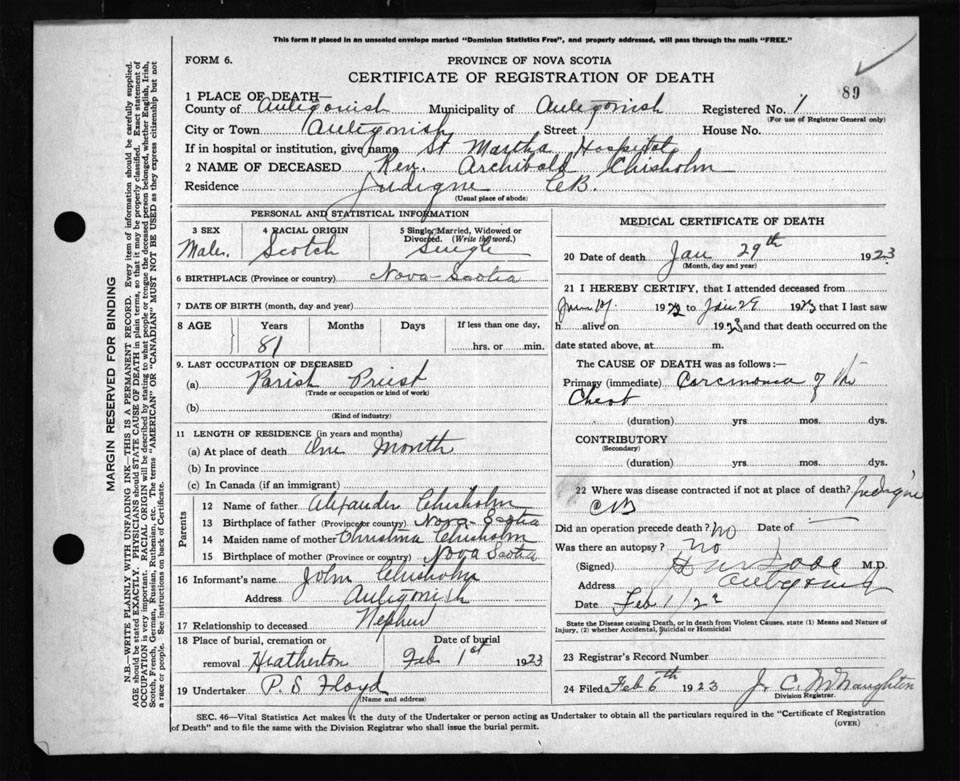 This form if placed in an unsealed envelope marked "Dominion Statistics Free", and properly addressed, will pass through the mails "FREE."
FORM 6.
PROVINCE OF NOVA SCOTIA
CERTIFICATE OF REGISTRATION OF DEATH
89
1 PLACE OF DEATH—
County of Antigonish Municipality of Antigonish Registered No. 1
(For use of Registrar General only)
City or Town Antigonish Street House No.
If in hospital or institution, give name St Martha Hospital
2 NAME OF DECEASED Rev. Archibald Chisholm
Residence Judique CB.
(Usual place of abode)
PERSONAL AND STATISTICAL INFORMATION
3 SEX 4 RACIAL ORIGIN 5 Single, Married, Widowed or Divorced. (Write the word.)
Male. Scotch Single
6 BIRTHPLACE (Province or country) Nova-Scotia
7 DATE OF BIRTH (month, day and year)
8 AGE Years Months Days If less than one day,
81 hrs. or min.
9. LAST OCCUPATION OF DECEASED
(a) Parish Priest
(Trade or occupation or kind of work)
(b)
(Kind of industry)
11 LENGTH OF RESIDENCE (in years and months)
(a) At place of death One Month
(b) In province
(c) In Canada (if an immigrant)
Parents
12 Name of father Alexander Chisholm
13 Birthplace of father (Province or country) Nova-Scotia
14 Maiden name of mother Christina Chisholm
15 Birthplace of mother (Province or country) Nova Scotia
16 Informant's name John Chisholm
Address Antigonish
17 Relationship to deceased Nephew
18 Place of burial, cremation or Date of burial
removal Heatherton Feb 1st 1923
19 Undertaker P. S Floyd
(Name and address)
MEDICAL CERTIFICATE OF DEATH
20 Date of death Jan 29th 1923
(Month, day and year)
21 I HEREBY CERTIFY, that I attended deceased from
192 to Jan 29 1923 that I last saw
h alive on 1923 and that death occurred on
date stated above, at m.
The CAUSE OF DEATH was as follows:—
Primary (immediate) Carcinoma of the
Chest
(duration) yrs. mos. dys.
CONTRIBUTORY
(Secondary)
(duration) yrs. mos. dys.
22 Where was disease contracted if not at place of death? Judique
CB
Did an operation precede death? No Date of
Was there an autopsy? No
(Signed) M.D.
Address Antigonish
Date Feb 1/23
State the Disease causing Death, or in death from Violent Causes, state (1) Means and Nature of
Injury, (2) whether Accidental, Suicidal or Homicidal
23 Registrar's Record Number
24 Filed Feb 6th 1923 J. C. McNaughton
Division Registrar.
SEC. 46—Vital Statistics Act makes it the duty of the Undertaker or person acting as Undertaker to obtain all the particulars required in the "Certificate of Registration
of Death" and to file the same with the Division Registrar who shall issue the burial permit.
(OVER)
MARGIN RESERVED FOR BINDING
N.B.—WRITE PLAINLY WITH UNFADING INK—THIS IS A PERMANENT RECORD. Every item of information should be carefully supplied.
AGE should be stated EXACTLY. PHYSICIANS should STATE CAUSE OF DEATH in plain terms, so that it may be properly classified. Exact statement of
OCCUPATION is very important. RACIAL ORIGIN will be described by stating to what people or tongue the deceased person belonged, whether English, Irish,
Scotch, French, German, Russian, Ruthenian, etc. The terms "AMERICAN" OR "CANADIAN" MUST NOT BE USED as they express citizenship but not
a race or people. See instructions on back of Certificate.